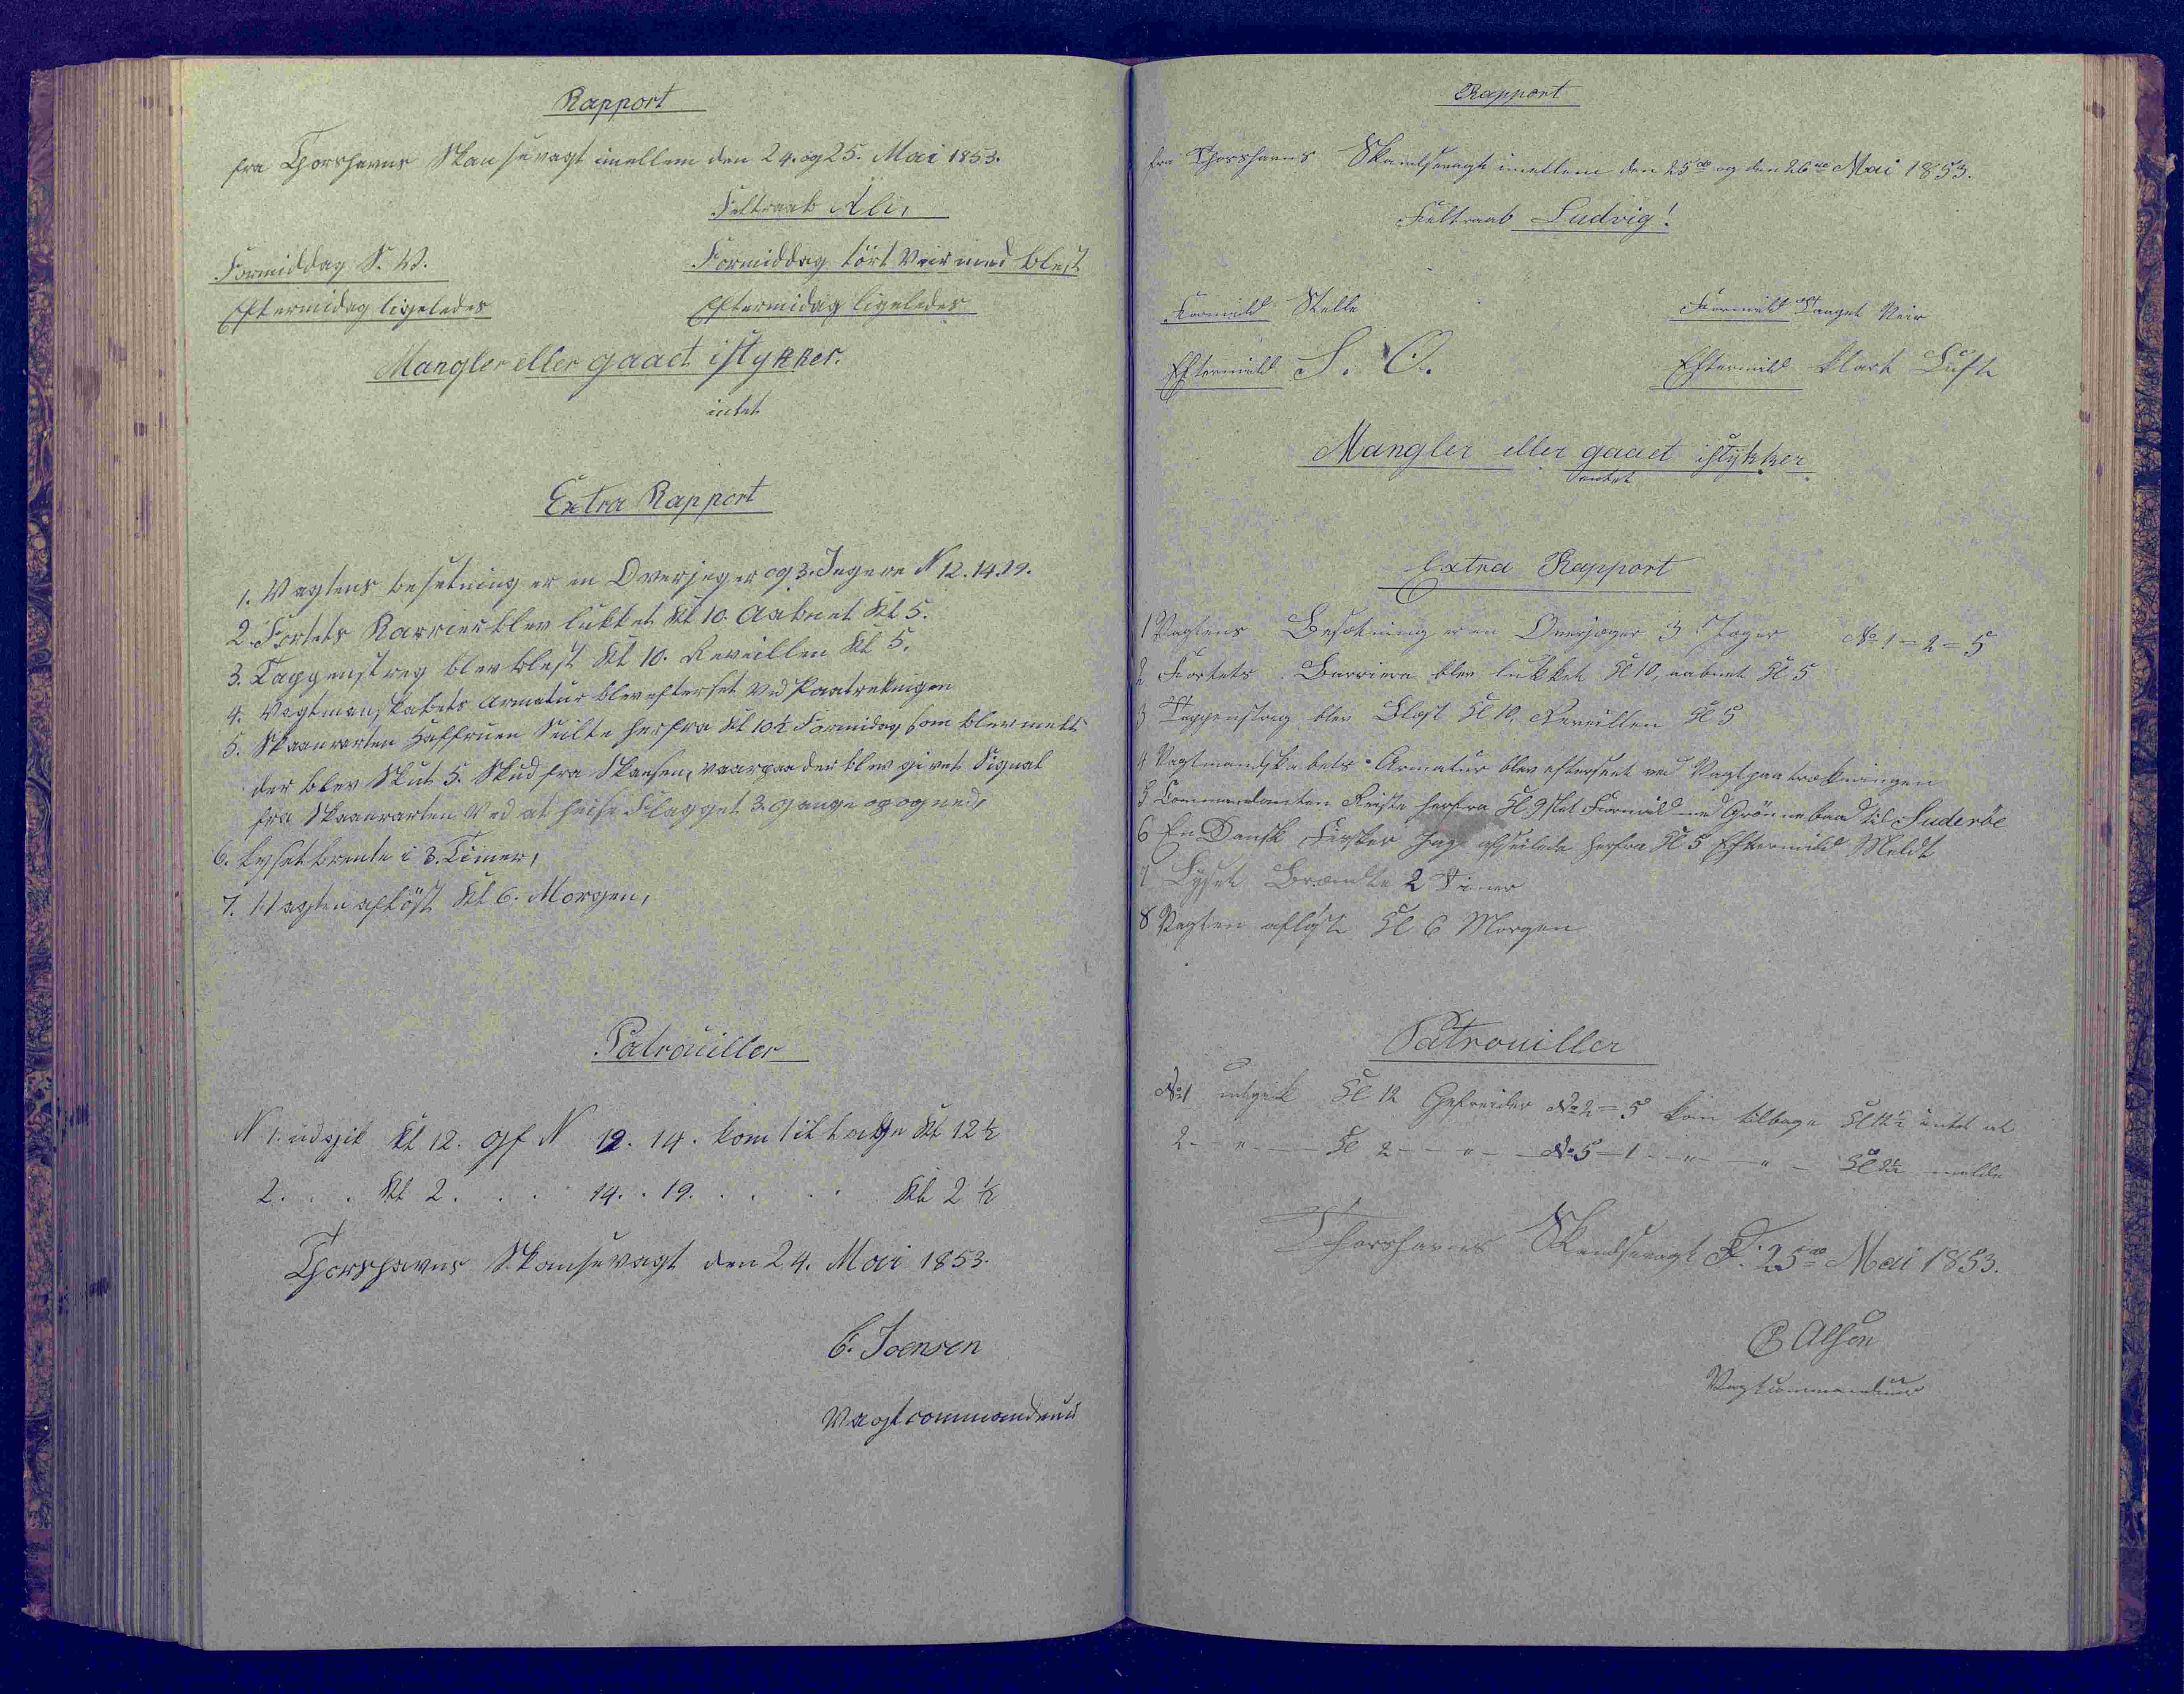 Rapport
fra Thorshavns Skansevagt imellem den 24. og 25. Mai 1853.
Feltraab Ali,
Formiddag S. W.
Formiddag tört Veir med blest
Eftermidag ligeledes
Eftermidag ligeledes
Mangler eller gaaet istykker.
intet
Extra Rapport
1. Vagtens besetning er en Overjeger og 3. Jegere N 12. 14. 19.
2. Fortets Barrier blev lukket Kl 10. Aabnet Kl 5.
3. Tappenstreg blev blest Kl 10. Reveillen Kl 5.
4. Vagtmanskabets Armatur blev efterset Ved Paatrekningen
5. Skaanrarten Haffruen Seilte herfra Kl 10½ Formidag som blev meldt
der blev Skut 5. Skud fra Skansen, vaarpaa der blev givet Signal
fra Skaanrarten Ved at heise Flagget 3 gange op og ned,
6. Lyset brente i 3. Timer,
7. Vagten aflöst Kl 6. Morgen,
Patrouiller
N 1. udgik Kl 12. Gf N 12. 14. kom tilbage Kl 12½
2. . . Kl 2. . . . 14. . 19. . . . . Kl 2½
Thorshavns Skansevagt den 24. Mai 1853.
C. Joensen
Vagtcommandeur
Rapport
fra Thorshavns Skandsevagt imellem den 25de og den 26de Mai 1853.
Feltraab Ludvig!
Formidd Stille
Formidd Taaget Veir
Eftermidd S. O.
Eftermidd klart Luft
Mangler eller gaaet istykker
intet
Extra Rapport
1 Vagtens Besætning er en Overjæger 3 Jæger No 1 = 2 = 5
2 Fortets Barriere blev lukket Kl 10, aabnet Kl 5
3 Tappenstræg blev Blæst Kl 10, Reveillen Kl 5
4 Vagtmandskabets Armatur blev efterseet ved Vagtpaatrækningen
5 Commandanten Reiste herfra Kl 9 slet Formidd med Grönnebaad til Suderöe
6 En Dansk Fisker Jagt afseilede herfra Kl 5 Eftermidd Meldt
7 Lyset Brændte 2 Timer
8 Vagten aflöst Kl 6 Morgen
Patrouiller
No 1 udgik Kl 12 Gefreider No 2 = 5 kom tilbage Kl 12½ intet at
2 - " - - Kl 2 - - " - - No 5 - 1 - " - - " - Kl 2½ melde
Thorshavns Skandsevagt D. 25de Mai 1853.
Vagtcommandeur